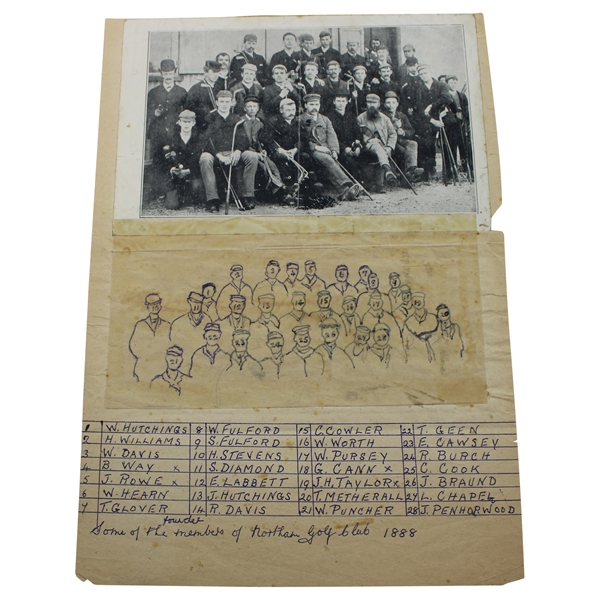 1 W. HUTCHINGS 8 W. FULFORD 15 C. COWLER 22 T. GEEN
2 H. WILLIAMS 9 S. FULFORD 16 W. WORTH 23 E. CAWSEY
3 W. DAVIS 10 H. STEVENS 17 W. PURSEY 24 R. BURCH
4 B. WAY x 11 S. DIAMOND 18 G. CANN x 25 C. COOK
5 J. ROWE x 12 E. LABBETT 19 J.H. TAYLOR x 26 J. BRAUND
6 W. HEARN 13 J. HUTCHINGS 20 T. METHERALL 27 L. CHAPEL
7 T. GLOVER 14 R. DAVIS 21 W. PUNCHER 28 J. PENHORWOOD
founder
Some of the members of Northam Golf Club 1888